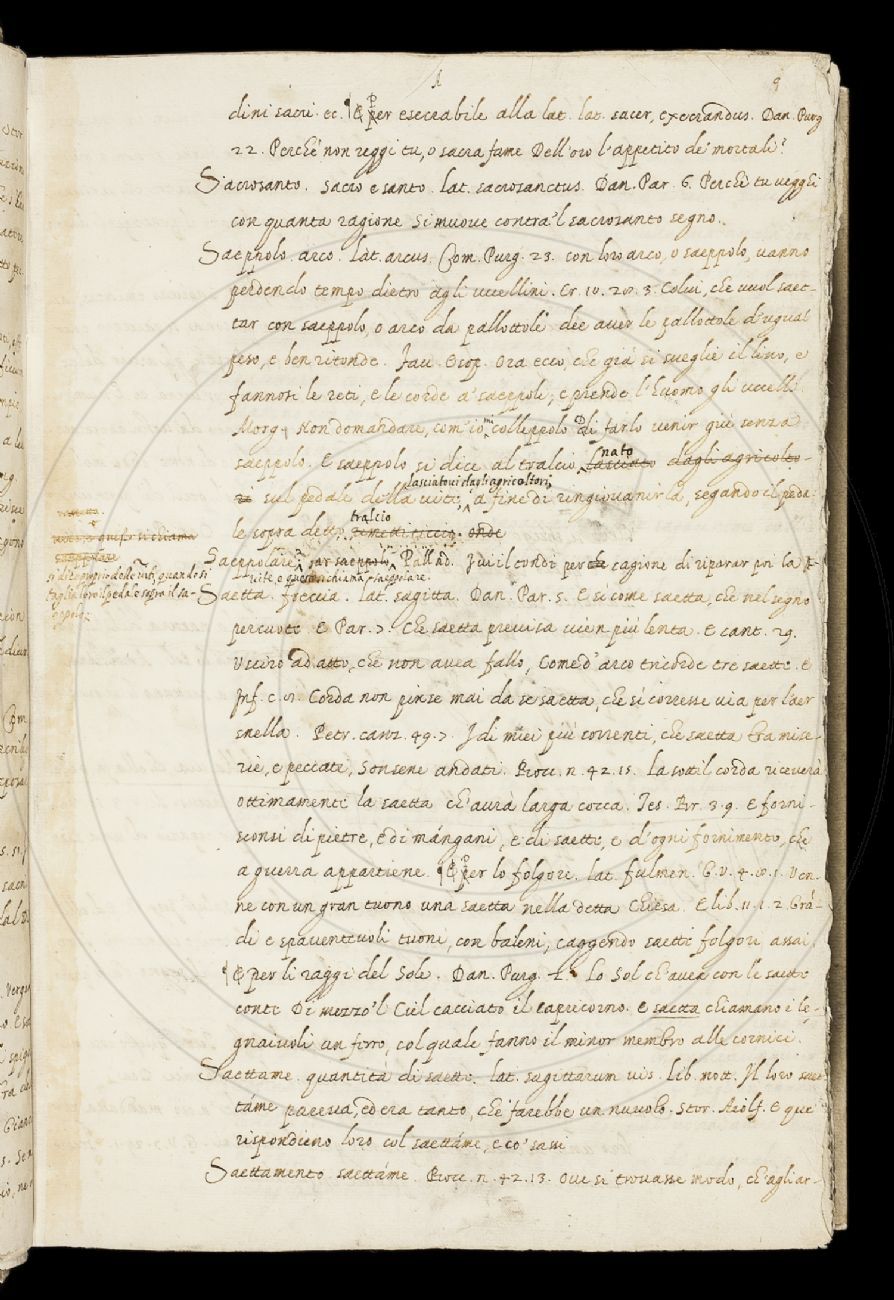 A 9
dini sacri. ec. ¶ E per esecrabile alla lat. lat. sacer, execrandus. Dan. Purg
22. Perché non reggi tu, o sacra fame Dell'oro l'appetito de' mortali?
Sacrosanto. Sacro e santo. Lat. sacrosanctus. Dan. Par. 6. Perchè tu veggi
con quanta ragione Si muove contra'l sacrosanto segno.
Saeppolo. arco. Lat. arcus. Com. Purg. 23. con loro arco, o saeppolo, vanno
perdendo tempo dietro agli uccellini. Cr. 10. 28. 3. Colui, che vuol saet-
tar con saeppolo, o arco da pallottole dee aver le pallottole d'ugual
peso, e ben ritonde. Fav. Esop. Ora ecco, che già si sveglie il lino, e
fannosi le reti, e le corde a' saeppoli; e prende l'huomo gli uccelli
Morg. Non domandare, com'io mi colleppolo Di farlo venir quì senza
saeppolo. E saeppolo si dice al tralcio, nato lasciato dagli agricolto-
ri sul pedale della vite, lasciatovi dagli agricoltori, a fine di ringiovanirla, segando il peda-
le sopra detto tralcio rimettiticcio. onde
quasi si chiama
saeppolare
si dice proprio delle viti, quando si
taglia loro il pedale sopra il sa-
eppolo.
Saeppolare. far saeppolo. Pallad. I vi il condi per cagione di riparar poi la
vite, e questo si chiama saeppolare.
Saetta. freccia. Lat. sagitta. Dan. Par. 5. E sì come saetta, che nel segno
percuote. E Par. 2. Che saetta previsa vien più lenta. E cant. 29.
Usciro ad atto, che non avea fallo, Come d'arco tricorde tre saette. E
Inf. c. 8. Corda non pinse mai da se saetta, che sì corresse via per l'aer
snella. Petr. canz. 49. 7. I dì miei più correnti, che saetta Fra mise-
rie, e peccati, Sonsene andati. Bocc. n. 42. 15. La sottil corda riceverà
ottimamente la saetta ch'avrà larga cocca. Tes. Br. 3. 9. E forni-
sconsi di pietre, e di mángani, e di saette, e d'ogni fornimento, che
a guerra appartiene. ¶ E per lo folgore. lat. fulmen. G. V. 4. 8. 1. Ven-
ne con un gran tuono una saetta nella detta Chiesa. E lib. 11. 1. 2. Grá-
di e spaventevoli tuoni, con baleni, caggendo saette folgori assai.
¶ E per li raggi del Sole. Dan. Purg. 2. Lo Sol ch'avea con le saette
conte Di mezzo'l Ciel cacciato il Capricorno. E saetta chiamano i le-
gnaiuoli un ferro, col quale fanno il minor membro alle cornici.
Saettame. quantità di saette. lat. sagittarum vis. Lib. mott. Il loro saet-
táme pareva, ed era tanto, che farebbe un nuvolo. Stor. Aiolf. E quì
rispondieno loro col saettáme, e co' sassi
Saettamento. saettáme. Bocc. n. 42. 13. Ove si trovasse modo, ch'agli ar-